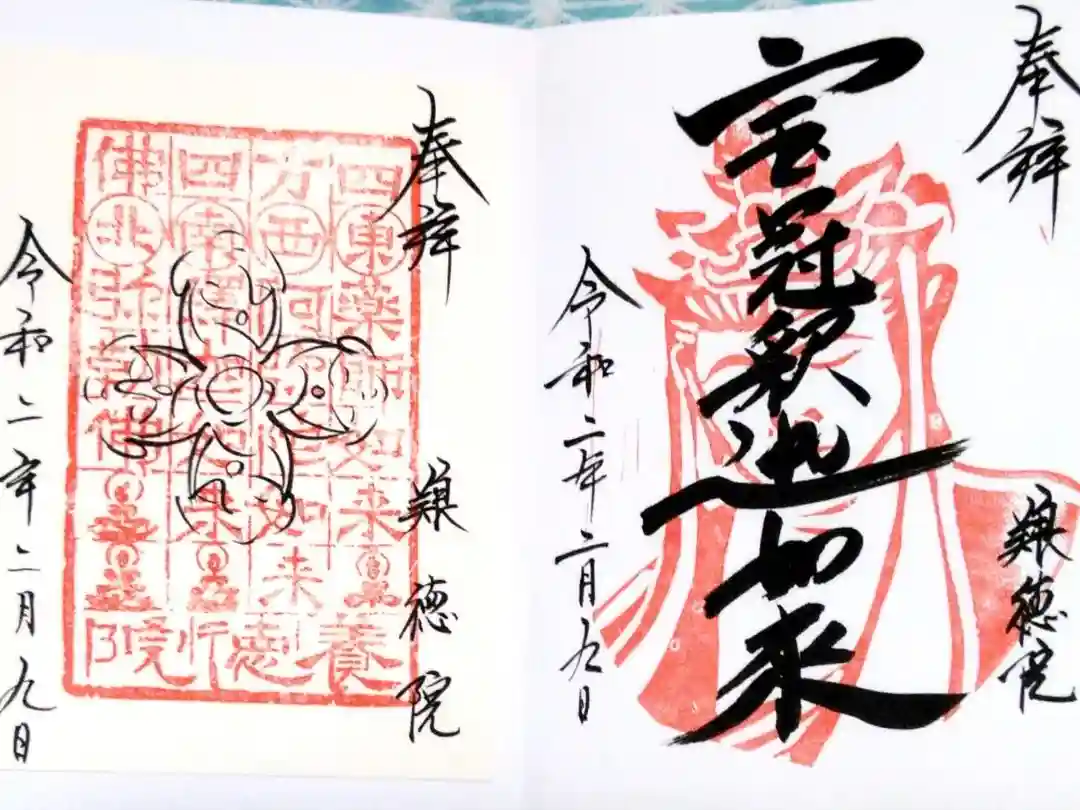 奉拝
宝冠釈迦如来
徳院
令和二年二月九日
奉拝
徳院
四東藥師如来
方西阿弥陀如来
四南釋迦如来
佛北弥勒佛
令和二年二月九日